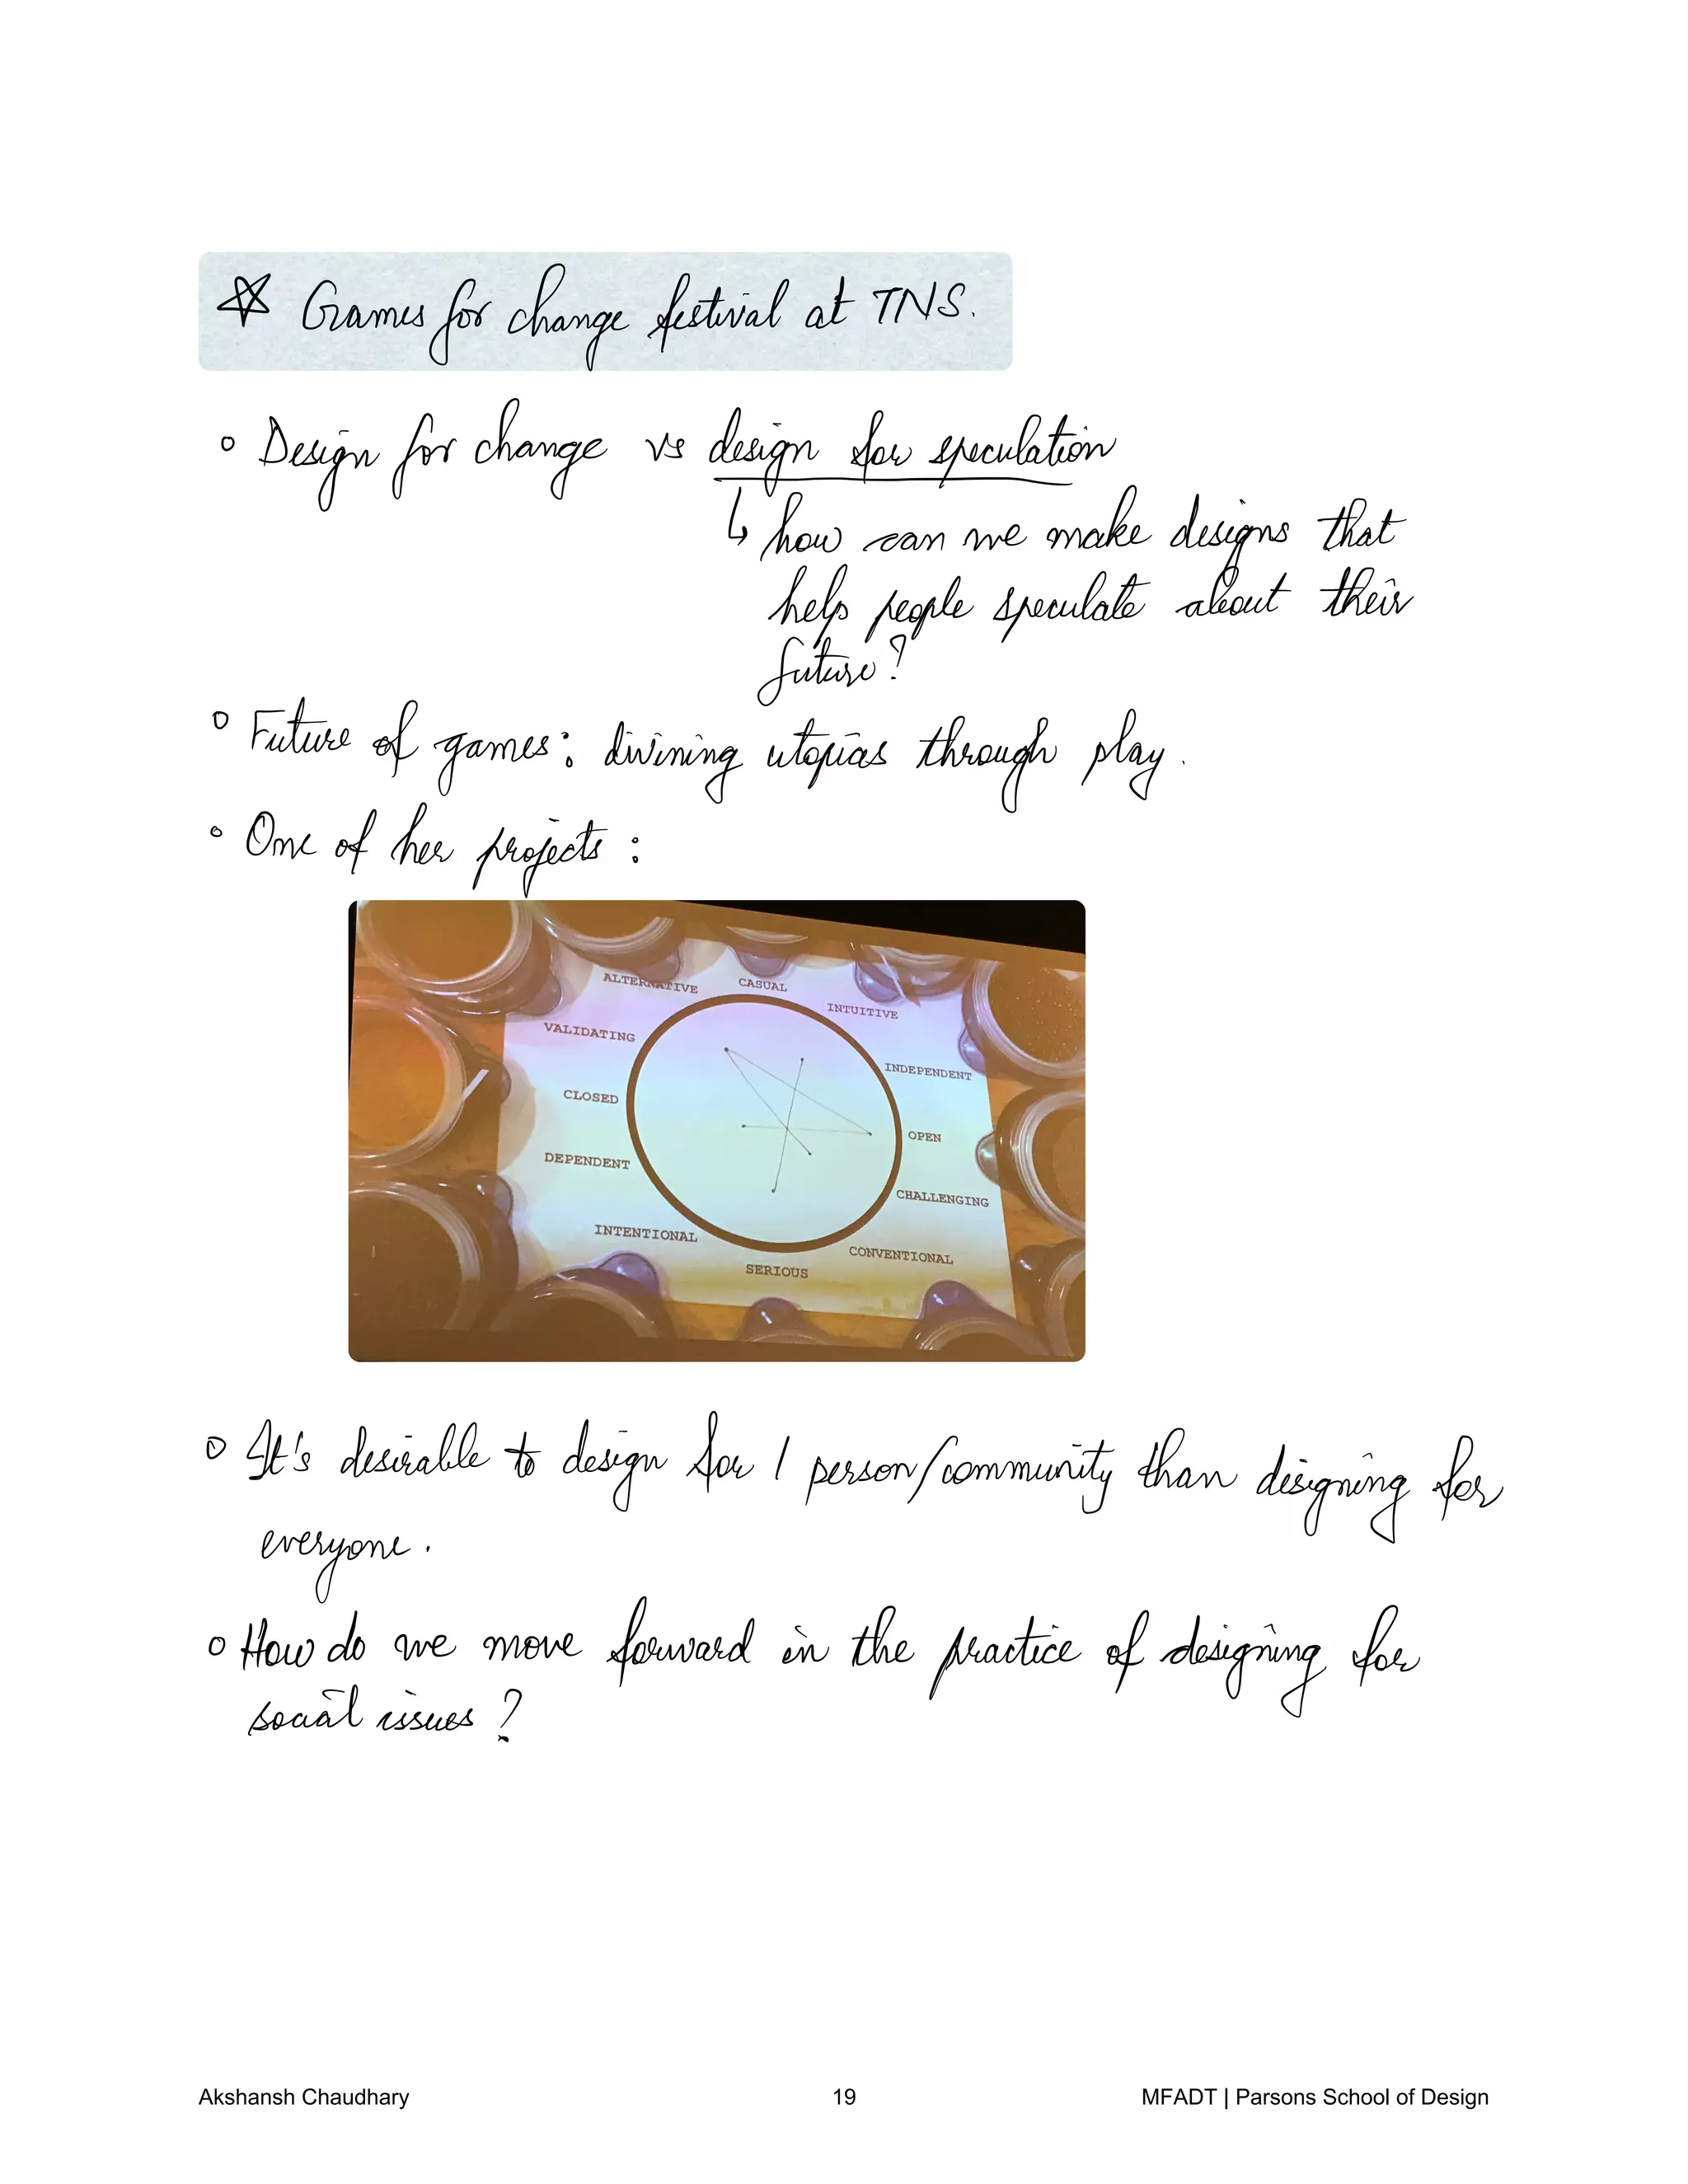 ☆ Games for change festival at TNS.
◦ Design for change vs design for speculation
↳ how can we make designs that
help people speculate about their
future?
◦ Future of games: divining utopias through play.
◦ One of her projects:
ALTERNATIVE
CASUAL
INTUITIVE
VALIDATING
INDEPENDENT
CLOSED
OPEN
DEPENDENT
CHALLENGING
INTENTIONAL
CONVENTIONAL
SERIOUS
◦ It's desirable to design for 1 person/community than designing for
everyone.
◦ How do we move forward in the practice of designing for
social issues?
Akshansh Chaudhary 19 MFADT | Parsons School of Design